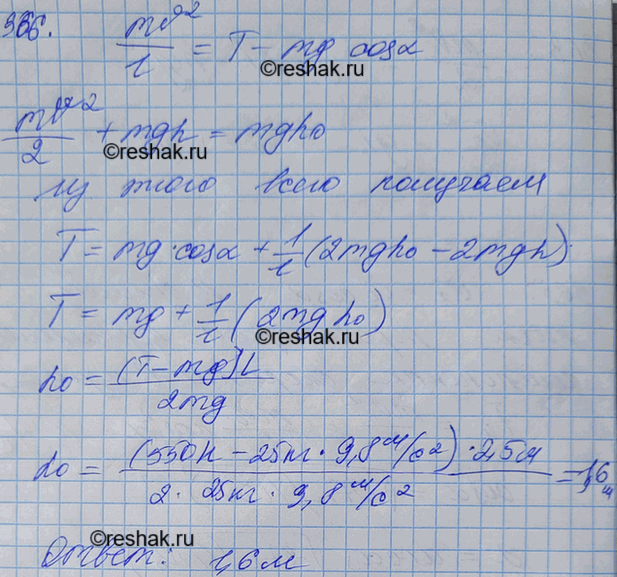 366.
mv²/l = T - mg cosα
©reshak.ru
mv²/2 + mgh = mgh₀
©reshak.ru
из этого всего получаем
T = mg·cosα + 1/l (2mgh₀ - 2mgh)
T = mg + 1/l (2mgh₀)
©reshak.ru
h₀ = (T - mg)L / 2mg
h₀ = (550Н - 25кг · 9,8 м/с²) · 2,5м / 2 · 25кг · 9,8 м/с² = 1,6 м
©reshak.ru
Ответ: 1,6 м